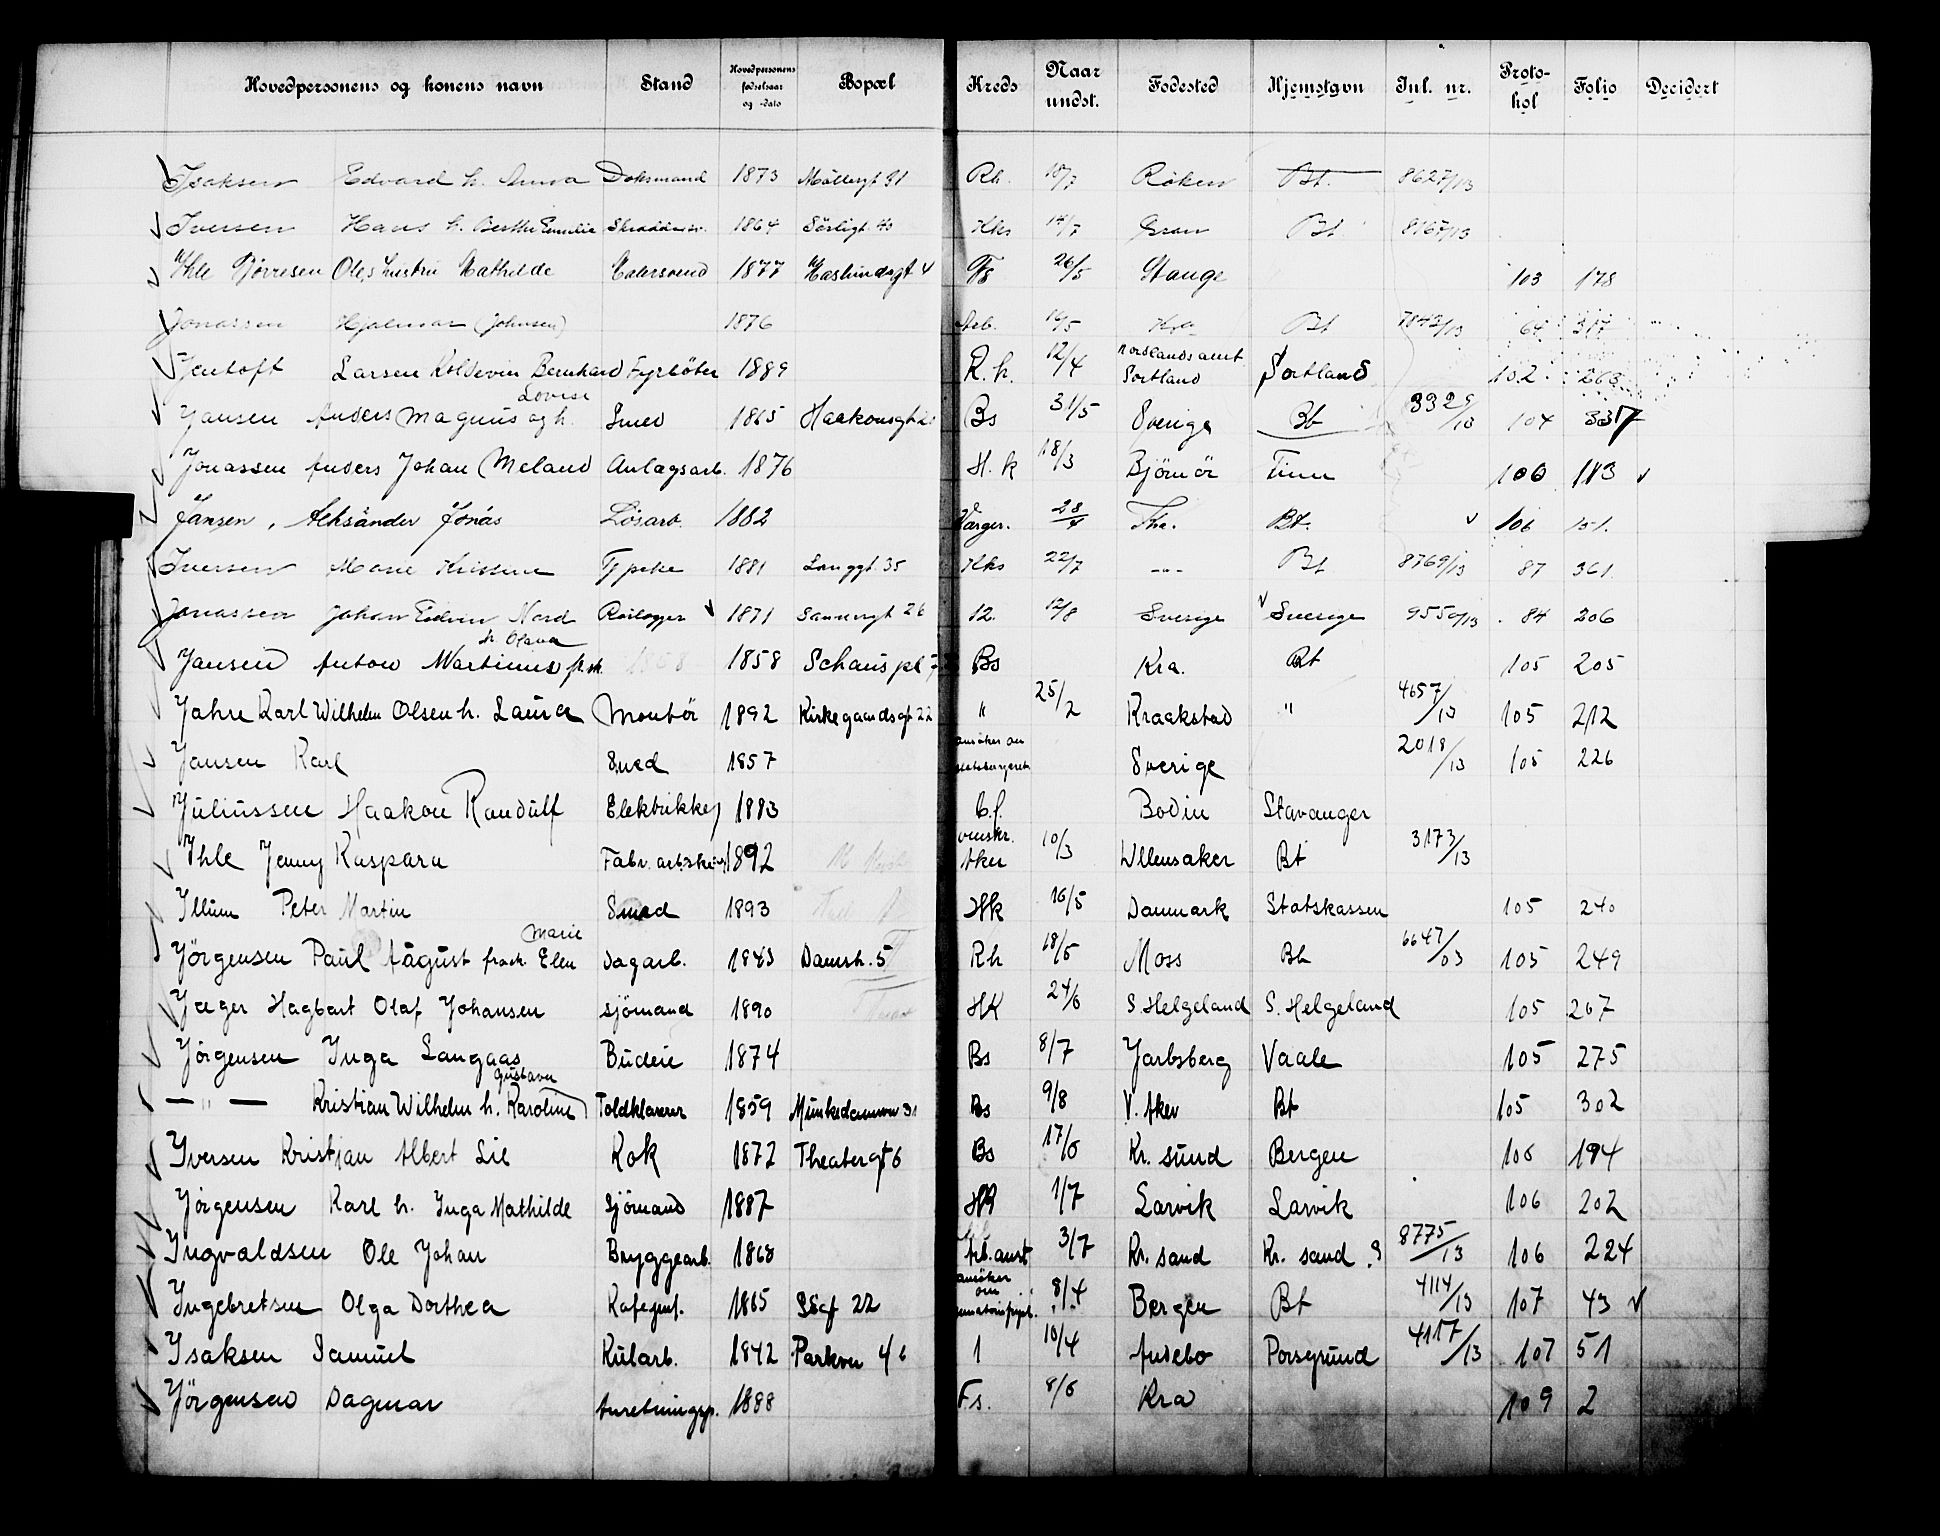 Hovedpersonens og konens navn Stand Hovedpersonens fødselsaar og -dato Bopæl Kreds Naar undst. Fødested Hjemstavn Inl. nr. Protokol Folio Decidert
Isaksen Edvard h. Anna Doksmand 1873 Møllergt 31 Rh. 10/7 Röken Bt. 8627/13
Iversen Hans h. Berthe Emilie 1864 Sörligt. 40 Hks 14/7 Gran Bt 8167/13
Ihle Tjörresen Ole, hustru Mathilde Malersvend 1877 4 Fs 26/5 Stange 103 178
Jonassen Hjalmar (Johnsen) 1876 Arb. 16/5 Bt 7842/13 64 317
Jentoft Larsen Koldevin Bernhard Fyrböter 1889 R. h. 12/4 Nordlands amt Sortland Sortland 102 263
Jansen Anders Magnus og h. Lovise Smed 1865 Haakonsgt Bs 31/5 Sverige Bt 104 337
Jonassen Anders Johan (Meland Anlægsarb. 1876 H. k 18/3 Björnör Tinn 106 113
Jansen, Aleksander Jonas Lösarb. 1882 Varger. 28/4 Bt. 106 151.
Iversen Marie Kristine 1881 Langgt. 35 Hks 22/7 -"- Bt 8769/13 87 361.
Jonassen Johan Edvin Nord Rörlægger 1871 Sannergt 26 12. 12/8 Sverige Sverige 9550/13 84 206
Jansen Anton Martinius fr. h. Olava 1858 1858 Schaus pl 7 Bs Kra. Bt 105 205
Jahre Karl Wilhelm Olsen h. Laura Montör 1892 Kirkegaardsgt 22 " 25/2 Kraakstad " 4657/13 105 212
Jansen Karl Smed 1857 ansöker om statsborgerret Sverige 2018/13 105 226
Juliussen Haakon Randulf Elektrikker 1883 C.f. Bodin Stavanger
Ihle Jenny Kaspara Fabr. arbeiderske 1892 Aker 10/3 Ullensaker Bt 3173/13
Illum Peter Martin Smed 1893 Hk 16/5 Danmark Statskassen 105 240
Jörgensen Paul August frask. Elen Marie Dagarb. 1843 Damstr. 5 Rh 18/5 Moss Bt 6647/03 105 249
Jæger Hagbart Olaf Johansen Sjömand 1890 HK 24/6 S. Helgeland S. Helgeland 105 267
Jörgensen Inga Langaas Budeie 1874 Bs 8/7 Jarlsberg Vaale 105 275
— " — Kristian Wilhelm h. Karoline Gustava Toldklarerer 1859 Munkedamsvn 31 Bs 9/8 V. Aker Bt 105 302
Iversen Kristian Albert Lie Kok 1872 Theatergt 6 Bs 17/6 Kr. sund Bergen 106 194
Jörgensen Karl h. Inga Mathilde Sjömand 1887 HK 1/7 Larvik Larvik 106 202
Ingvaldsen Ole Johan Bryggearb. 1868 Arb. anst 3/7 Kr. sand Kr. sand ? 8775/13 106 224
Ingebretsen Olga Dorthea 1865 22 ansöker om 8/4 Bergen Bt 4114/13 107 43
Isaksen Samuel Kularb. 1842 Parkvn 4 1 10/4 Andebo Porsgrund 4117/13 107 51
Jörgensen Dagmar Anretningsp. 1888 Fs. 8/6 Kra 109 2